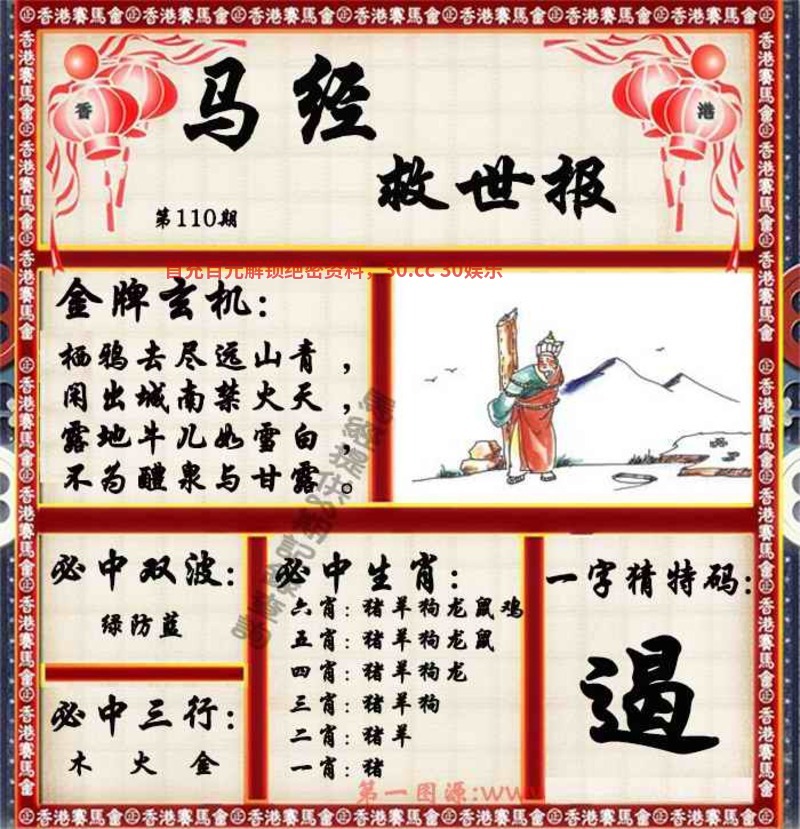 ㊣香港賽馬會㊣香港賽馬會㊣香港賽馬會㊣香港賽馬會㊣香港賽馬會㊣香港賽馬會㊣
香
港
马经
救世报
第110期
首充百元解锁绝密资料，30.cc 30娱乐
金牌玄机：
栖鸦去尽远山青，
闲出城南禁火天，
露地牛儿如雪白，
不为醴泉与甘露。
必中双波：
绿防蓝
必中三行：
木 火 金
必中生肖：
六肖：猪羊狗龙鼠鸡
五肖：猪羊狗龙鼠
四肖：猪羊狗龙
三肖：猪羊狗
二肖：猪羊
一肖：猪
一字猜特码：
遏
第一图源:ww
㊣香港賽馬會㊣香港賽馬會㊣香港賽馬會㊣香港賽馬會㊣香港賽馬會㊣香港賽馬會㊣